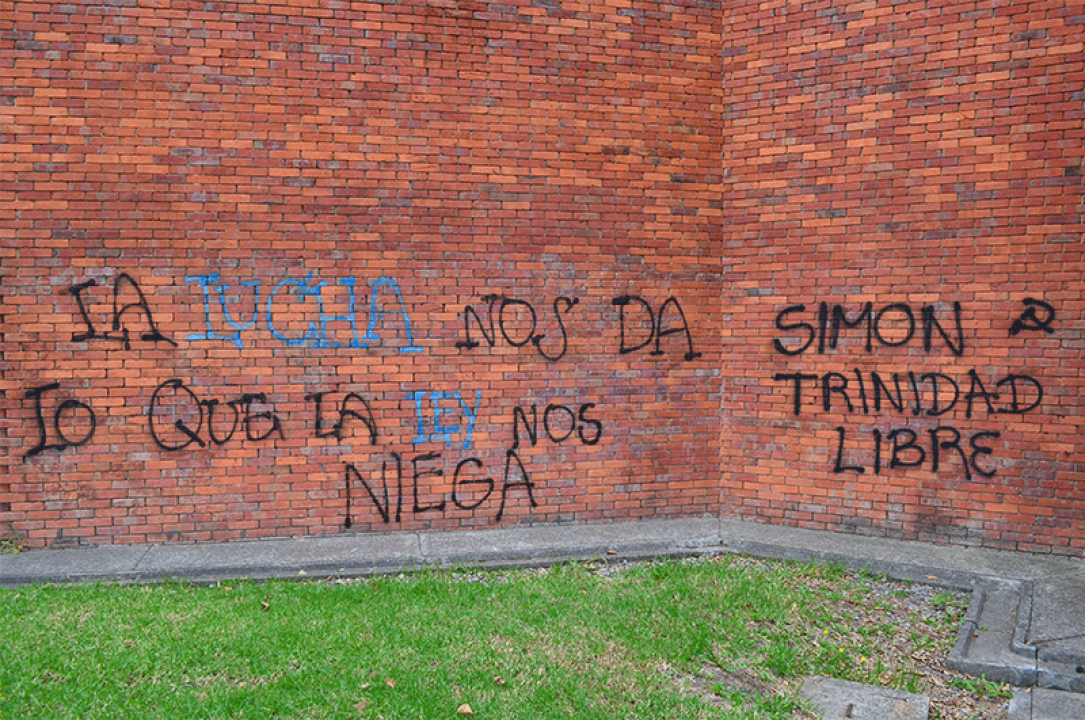 LA LUCHA NOS DA
LO QUE LA LEY NOS
NIEGA
SIMON ☭
TRINIDAD
LIBRE